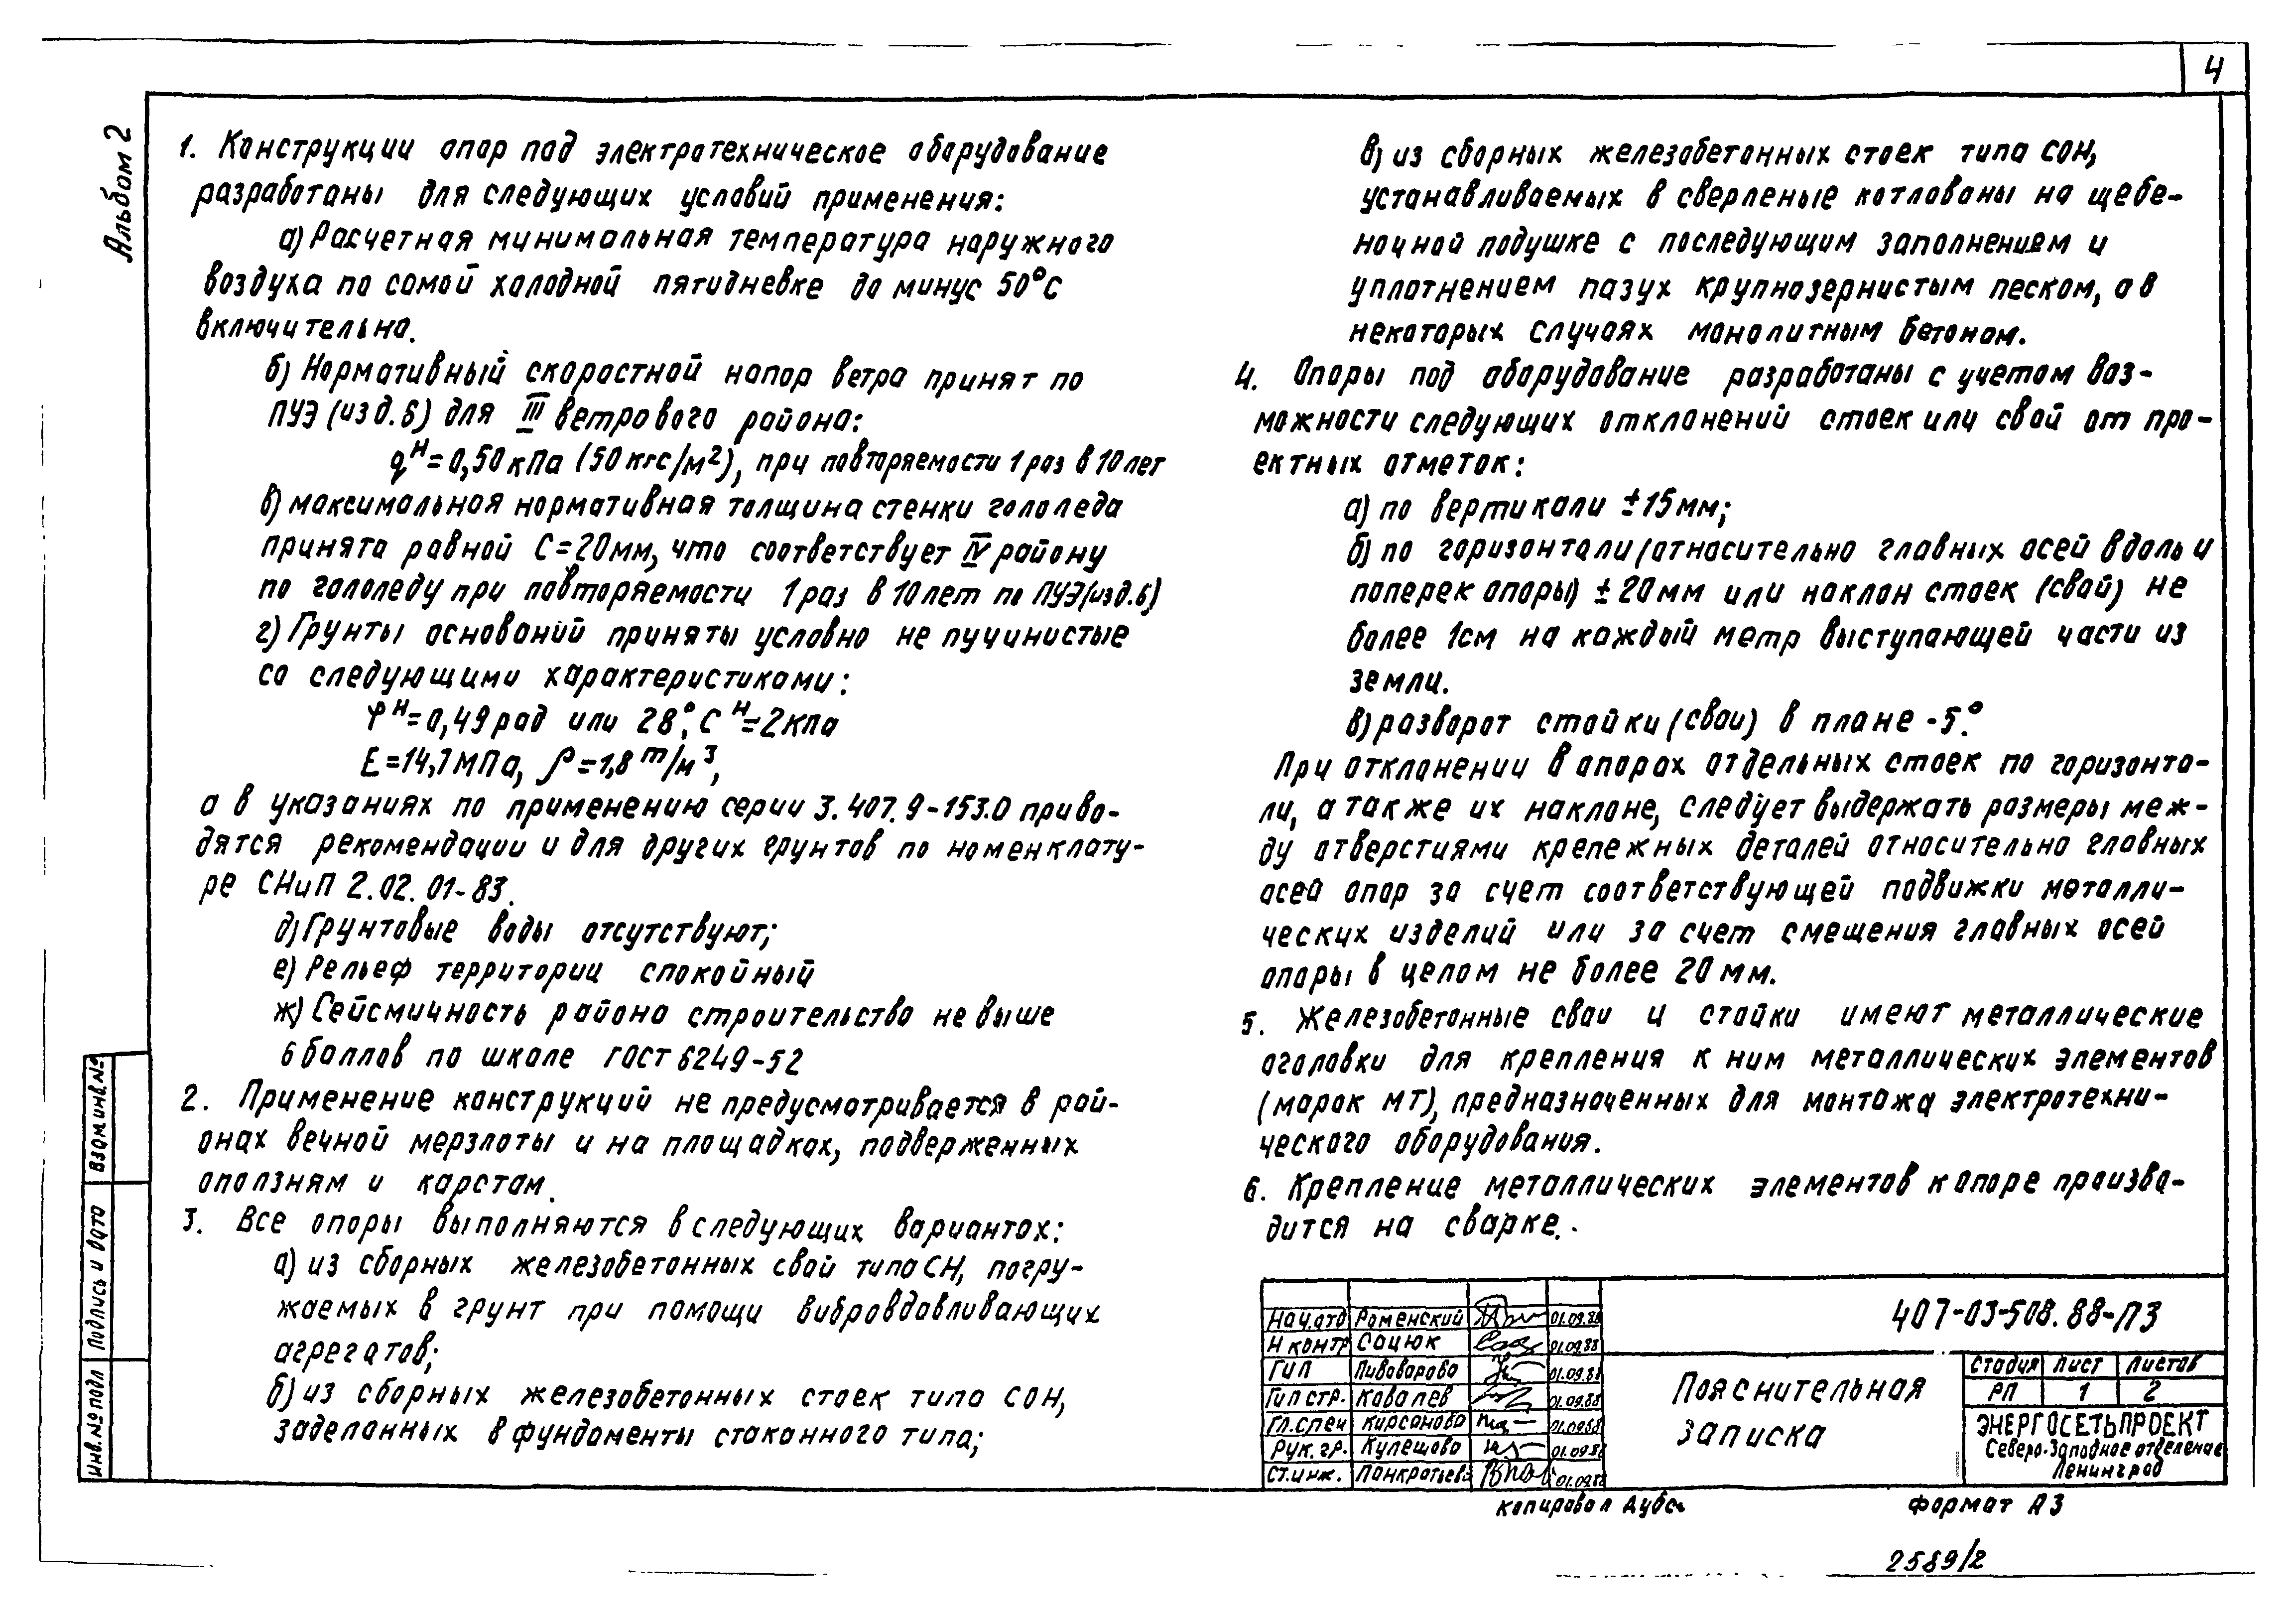 4
Альбом 2
1. Конструкции опор под электротехническое оборудование
разработаны для следующих условий применения:
а) Расчетная минимальная температура наружного
воздуха по самой холодной пятидневке до минус 50°С
включительно.
б) Нормативный скоростной напор ветра принят по
ПУЭ (изд.6) для III ветрового района:
qᴴ=0,50кПа (50кгс/м²), при повторяемости 1 раз в 10 лет
в) максимальная нормативная толщина стенки гололеда
принята равной С=20мм, что соответствует IV району
по гололеду при повторяемости 1 раз в 10 лет по ПУЭ (изд.6)
г) Грунты оснований приняты условно не пучинистые
со следующими характеристиками:
φᴴ=0,49 рад или 28°, Сᴴ=2кПа
Е=14,7МПа, ρ=1,8 т/м³,
а в указаниях по применению серии 3.407.9-153.0 приво-
дятся рекомендации и для других грунтов по номенклату-
ре СНиП 2.02.01-83.
д) Грунтовые воды отсутствуют;
е) Рельеф территории спокойный
ж) Сейсмичность района строительства не выше
6 баллов по шкале ГОСТ 6249-52
2. Применение конструкций не предусмотривается в рай-
онах вечной мерзлоты и на площадках, подверженных
оползням и карстам.
3. Все опоры выполняются в следующих вариантах:
а) из сборных железобетонных свай типа СН, погру-
жаемых в грунт при помощи вибровдавливающих
агрегатов;
б) из сборных железобетонных стоек типа СОН,
заделанных в фундаменты стаканного типа;
в) из сборных железобетонных стоек типа СОН,
устанавливаемых в сверленые котлованы на щебе-
ночной подушке с последующим заполнением и
уплотнением пазух крупнозернистым песком, а в
некоторых случаях монолитным бетоном.
4. Опоры под оборудование разработаны с учетом воз-
можности следующих отклонений стоек или свай от про-
ектных отметок:
а) по вертикали ±15мм;
б) по горизонтали (относительно главных осей вдоль и
поперек опоры) ±20мм или наклон стоек (свай) не
более 1см на каждый метр выступающей части из
земли.
в) разворот стойки (сваи) в плане -5°.
При отклонении в опорах отдельных стоек по горизонта-
ли, а также их наклоне, следует выдержать размеры меж-
ду отверстиями крепежных деталей относительно главных
осей опор за счет соответствующей подвижки металли-
ческих изделий или за счет смещения главных осей
опоры в целом не более 20мм.
5. Железобетонные сваи и стойки имеют металлические
оголовки для крепления к ним металлических элементов
(марок МТ), предназначенных для монтажа электротехни-
ческого оборудования.
6. Крепление металлических элементов к опоре произво-
дится на сварке.
Взам.инв.№
Подпись и дата
Инв.№ подл
Нач.отд Роменский 01.09.88
Н контр Сацюк 01.09.88
ГИП Пивоварова 01.09.88
Гип стр. Ковалев 01.09.88
Гл.спец Кирсанова 01.09.88
Рук.гр. Кулешова 01.09.88
Ст.инж. Панкратьева 01.09.88
407-03-508.88-ПЗ
Пояснительная
записка
Стадия Лист Листов
РП 1 2
ЭНЕРГОСЕТЬПРОЕКТ
Северо-Западное отделение
Ленинград
Копировал
Формат А3
2589/2